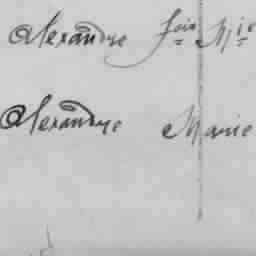 Alexandre Fois Mie
Alexandre Marie